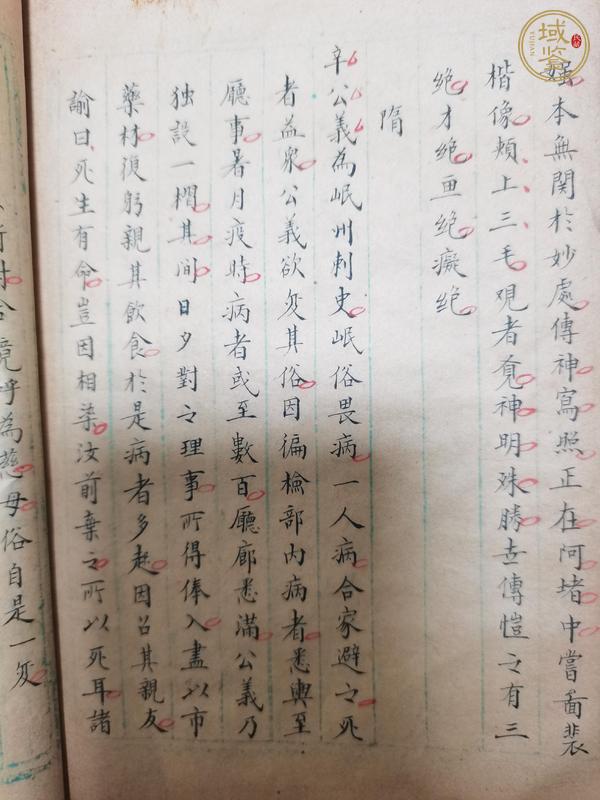 媸本無關於妙處傳神寫照正在阿堵中嘗畐裴
楷像頰上三毛观者覔神明殊勝世傳愷之有三
绝才绝画绝癡绝
隋
辛公義為岷州刺史岷俗畏病一人病合家避之死
者益衆公義欲変其俗因徧檢部内病者悉輿至
廳事暑月疫時病者或至數百廳廊悉滿公義乃
独設一榻其间日夕對之理事所得俸入盡以市
藥材復躬親其飲食於是病者多起因召其親友
諭曰死生有命豈因相染汝前棄之所以死耳諸
合竟呼為慈母俗自是一変
域鑒
YUJIAN